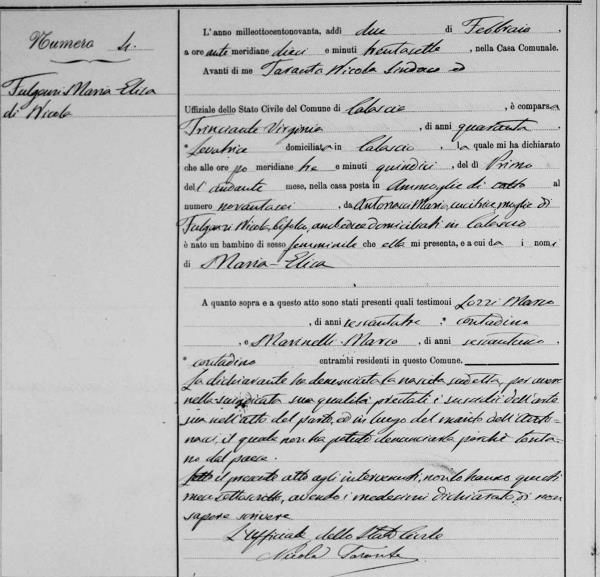 Numero 4.
Fulgenzi Maria Elisa
di Nicola
L'anno milleottocentonovanta, addì due di Febbraio,
a ore anti meridiane dieci e minuti trentasette, nella Casa Comunale.
Avanti di me Taranta Nicola Sindaco ed
Uffiziale dello Stato Civile del Comune di Calascio, è comparsa
Trinciante Virginia, di anni quaranta
Levatrice domiciliata in Calascio, la quale mi ha dichiarato
che alle ore po meridiane tre e minuti quindici, del dì Primo
dell'andante mese, nella casa posta in al
numero novantasei, da Antonacci Maria, cucitrice, moglie di
Nicola, domiciliati in Calascio
è nato un bambino di sesso femminile che ella mi presenta, e a cui da i nomi
di Maria-Elisa
A quanto sopra e a questo atto sono stati presenti quali testimoni Marco
, di anni sessantatre contadino
, e Marinelli Marco, di anni
contadino entrambi residenti in questo Comune.
La dichiarante ha denunciata la nascita suddetta, per avere
nella suindicata sua qualità prestati i sussidii dell'arte
sua nell'atto del parto, ed in luogo del marito dell'Anto-
nacci, il quale non ha potuto denunciarla perchè lonta-
no dal paese.
Letto il presente atto agli intervenuti, non lo hanno questi
meco sottoscritto, avendo i medesimi dichiarato di non
sapere scrivere
L'Ufficiale dello Stato Civile
Nicola Taranta